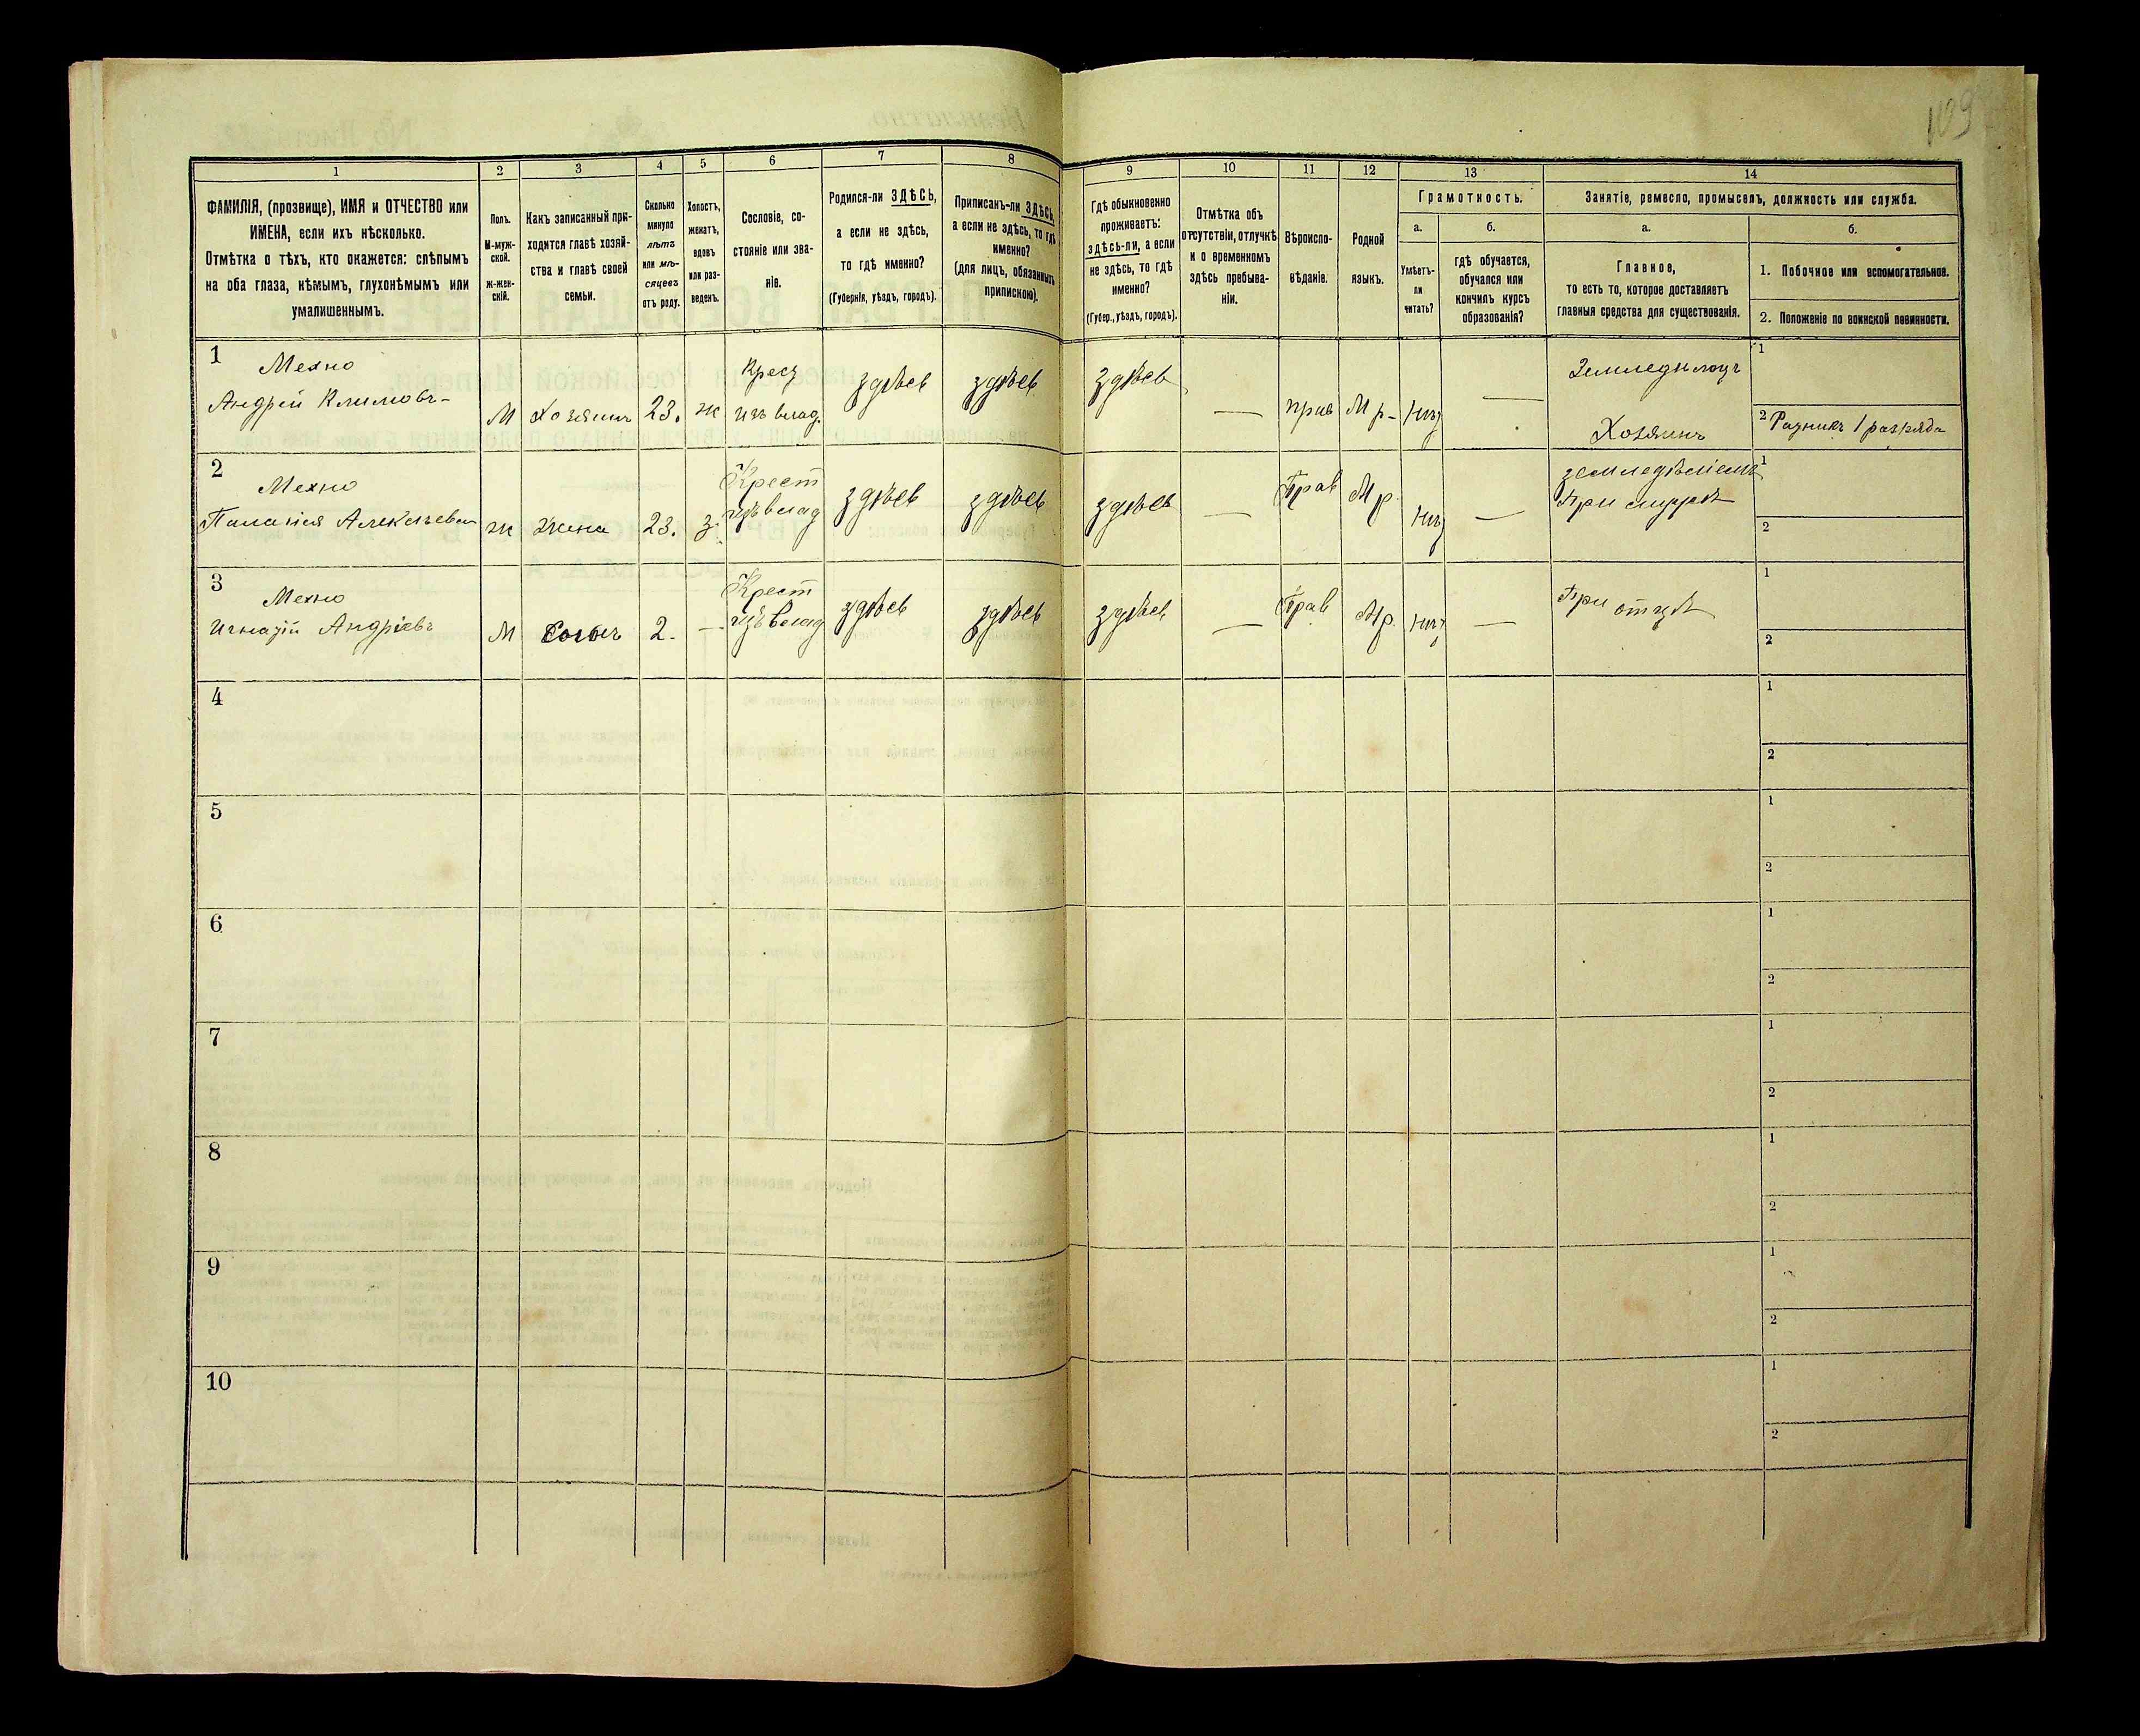 109
1
2
3
4
5
6
7
8
9
10
11
12
13
14
ФАМИЛІЯ, (прозвище), ИМЯ и ОТЧЕСТВО или
ИМЕНА, если ихъ нѣсколько.
Отмѣтка о тѣхъ, кто окажется: слѣпымъ
на оба глаза, нѣмымъ, глухонѣмымъ или
умалишеннымъ.
Полъ.
М-муж-
ской.
ж-жен-
скій.
Какъ записанный при-
ходится главѣ хозяй-
ства и главѣ своей
семьи.
Сколько
минуло
лѣтъ
или мѣ-
сяцевъ
отъ роду.
Холостъ,
женатъ,
вдовъ
или раз-
веденъ.
Сословіе, со-
стояніе или зва-
ніе.
Родился-ли ЗДѢСЬ,
а если не здѣсь,
то гдѣ именно?
(Губернія, уѣздъ, городъ).
Приписанъ-ли ЗДѢСЬ,
а если не здѣсь, то гдѣ
именно?
(для лицъ, обязанныхъ
припискою).
Гдѣ обыкновенно
проживаетъ:
здѣсь-ли, а если
не здѣсь, то гдѣ
именно?
(Губер., уѣздъ, городъ).
Отмѣтка объ
отсутствіи, отлучкѣ
и о временномъ
здѣсь пребыва-
ніи.
Вѣроиспо-
вѣданіе.
Родной
языкъ.
Грамотность.
а.
Умѣетъ-
ли
читать?
б.
гдѣ обучается,
обучался или
кончилъ курсъ
образованія?
Занятіе, ремесло, промыселъ, должность или служба.
а.
Главное,
то есть то, которое доставляетъ
главныя средства для существованія.
б.
1. Побочное или вспомогательное.
2. Положеніе по воинской повинности.
1
Мехно
Андрей Климовъ
М
Хозяинъ
23.
ж
Крест
изъ влад.
здѣсь
здѣсь
здѣсь
—
прав
М р-
нѣт
—
Земледѣлецъ
Хозяинъ
1
2 Ратникъ 1 разряда
2
Мехно
Палагія Алексѣева
ж
Жена
23.
з.
Крест
изъ влад
здѣсь
здѣсь
здѣсь
—
Прав
Мр.
нѣт
—
земледѣліемъ
При мужѣ
1
2
3
Мехно
Игнатій Андріевъ
М
Сынъ
2.
—
Крест
изъ влад
здѣсь
здѣсь
здѣсь
—
Прав
Мр.
нѣт
—
При отцѣ
1
2
4
1
2
5
1
2
6
1
2
7
1
2
8
1
2
9
1
2
10
1
2